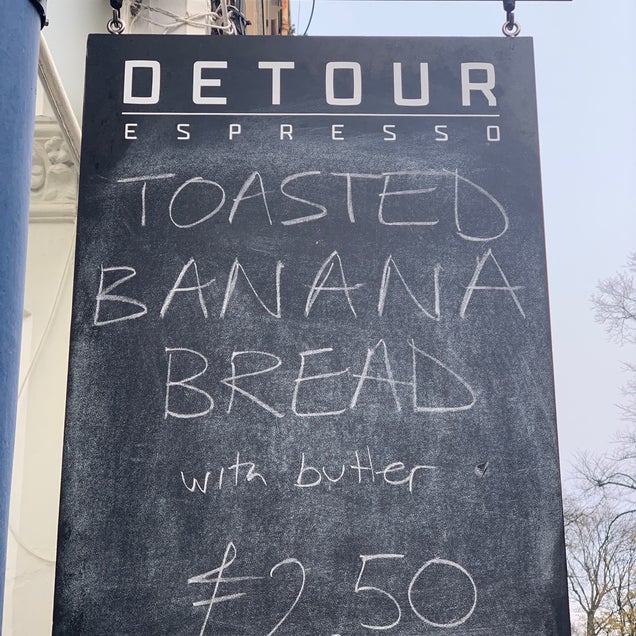 DETOUR
ESPRESSO
TOASTED
BANANA
BREAD
with butter
£2.50